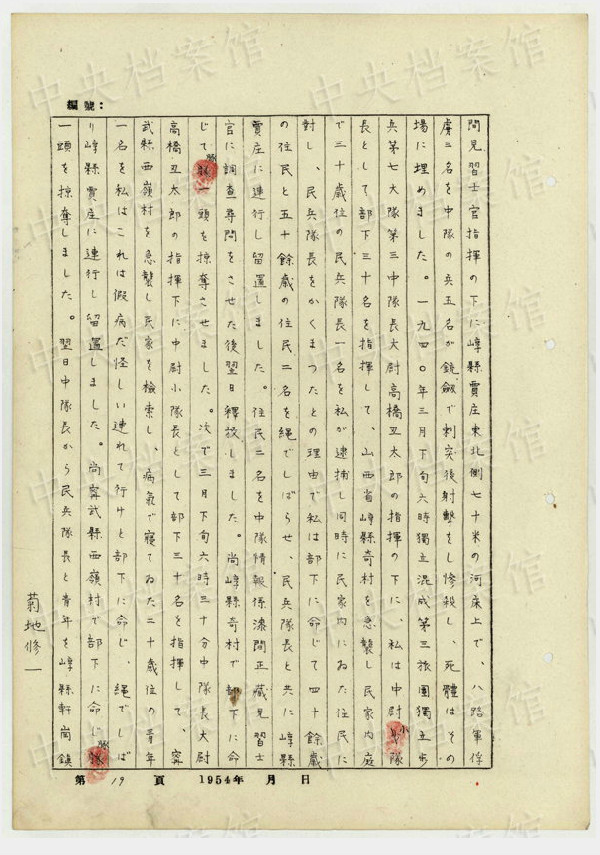 編號：
間見習士官指揮の下に崞縣賈庄東北側七十米の河床上で、八路軍俘
虜三名を中隊の兵五名が銃劍で刺突後射擊をし慘殺し、死體はその
場に埋めました。一九四〇年三月下旬六時獨立混成第三旅團獨立步
兵第七大隊第三中隊長大尉高橋丑太郎の指揮の下に、私は中尉小隊
長として部下三十名を指揮して、山西省崞縣奇村を急襲し民家內庭
で二十歲位の民兵隊長一名を私が逮捕し同時に民家內にゐた住民に
対し、民兵隊長をかくまつたとの理由で私は部下に命じて四十餘歲
の住民と五十餘歲の住民二名を縄でしばらせ、民兵隊長と共に崞縣
賈庄に連行し留置しました。住民二名を中隊情報係漆間正藏見習士
官に調查尋問をさせた後翌日釋放しました。尚崞縣奇村で部下に命
じて豚一頭を掠奪させました。次で三月下旬六時三十分中隊長大尉
高橋丑太郎の指揮下に中尉小隊長として部下三十名を指揮して、寧
武縣西嶺村を急襲し民家を檢索し、病氣で寢てゐた二十歲位の青年
一名を私はこれは假病だ怪しい連れて行けと部下に命じ、縄でしば
り崞縣賈庄に連行し留置しました。尚寧武縣西嶺村で部下に命じ豚
一頭を掠奪しました。翌日中隊長から民兵隊長と青年を崞縣軒崗鎮
菊地修一
第 19 頁 1954年 月 日
中央档案馆